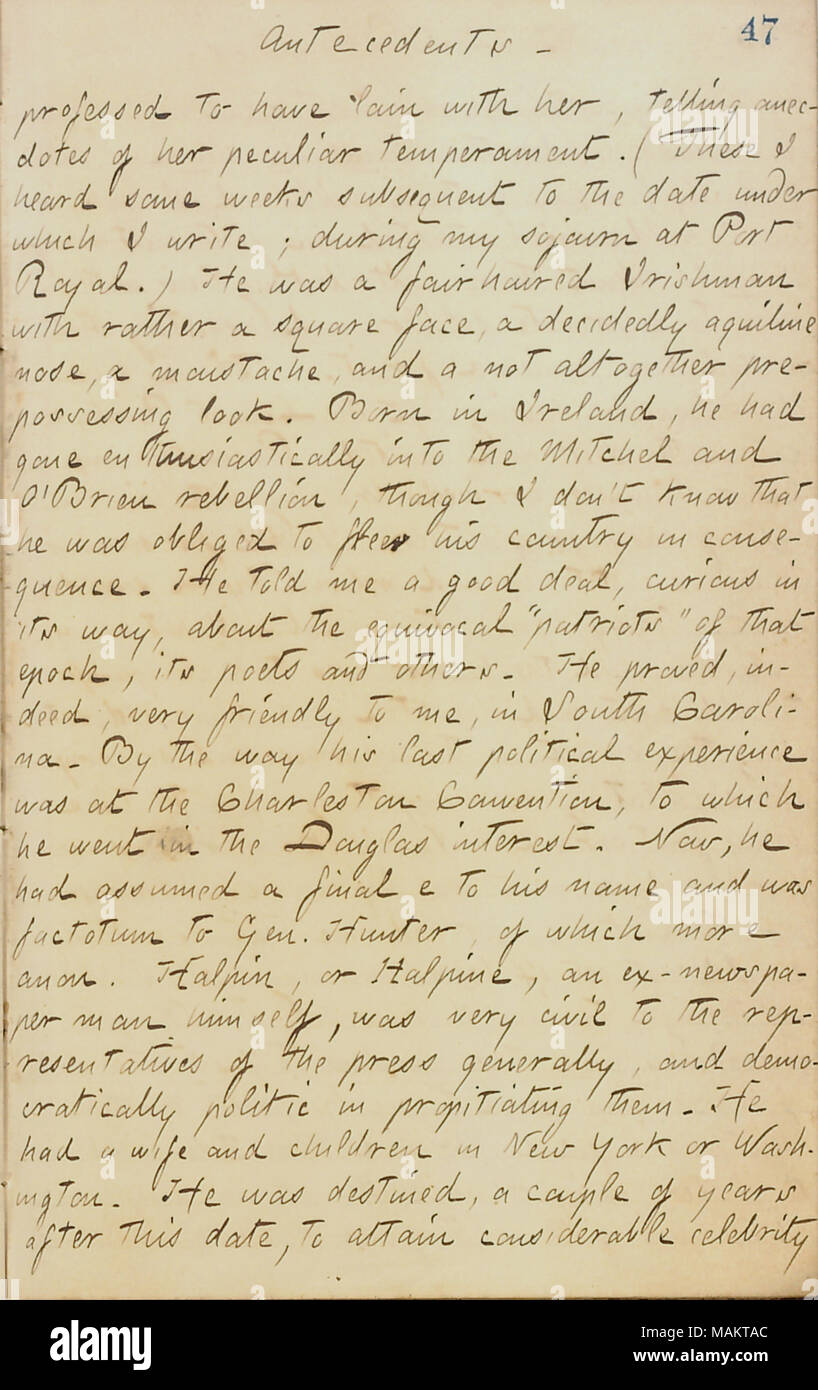 47
Antecedents -
professed to have lain with her, telling anec-
dotes of her peculiar temperament. (These I
heard some weeks subsequent to the date under
which I write; during my sojourn at Port
Royal.) He was a fairhaired Irishman
with rather a square face, a decidedly aquiline
nose, a moustache, and a not altogether pre-
possessing look. Born in Ireland, he had
gone enthusiastically into the Mitchel and
O'Brien rebellion, though I don't know that
he was obliged to flee his country in conse-
quence. He told me a good deal, curious in
its way, about the equivocal "patriots" of that
epoch, its poets and others. He proved, in-
deed, very friendly to me, in South Caroli-
na. By the way his last political experience
was at the Charleston Convention, to which
he went in the Douglas interest. Now, he
had assumed a final e to his name and was
factotum to Gen. Hunter, of which more
anon. Halpin, or Halpine, an ex-newspa-
per man himself, was very civil to the rep-
resentatives of the press generally, and demo-
cratically politic in propitiating them. He
had a wife and children in New York or Wash-
ington. He was destined, a couple of years
after this date, to attain considerable celebrity
alamy
Image ID: MAKTAC
www.alamy.com